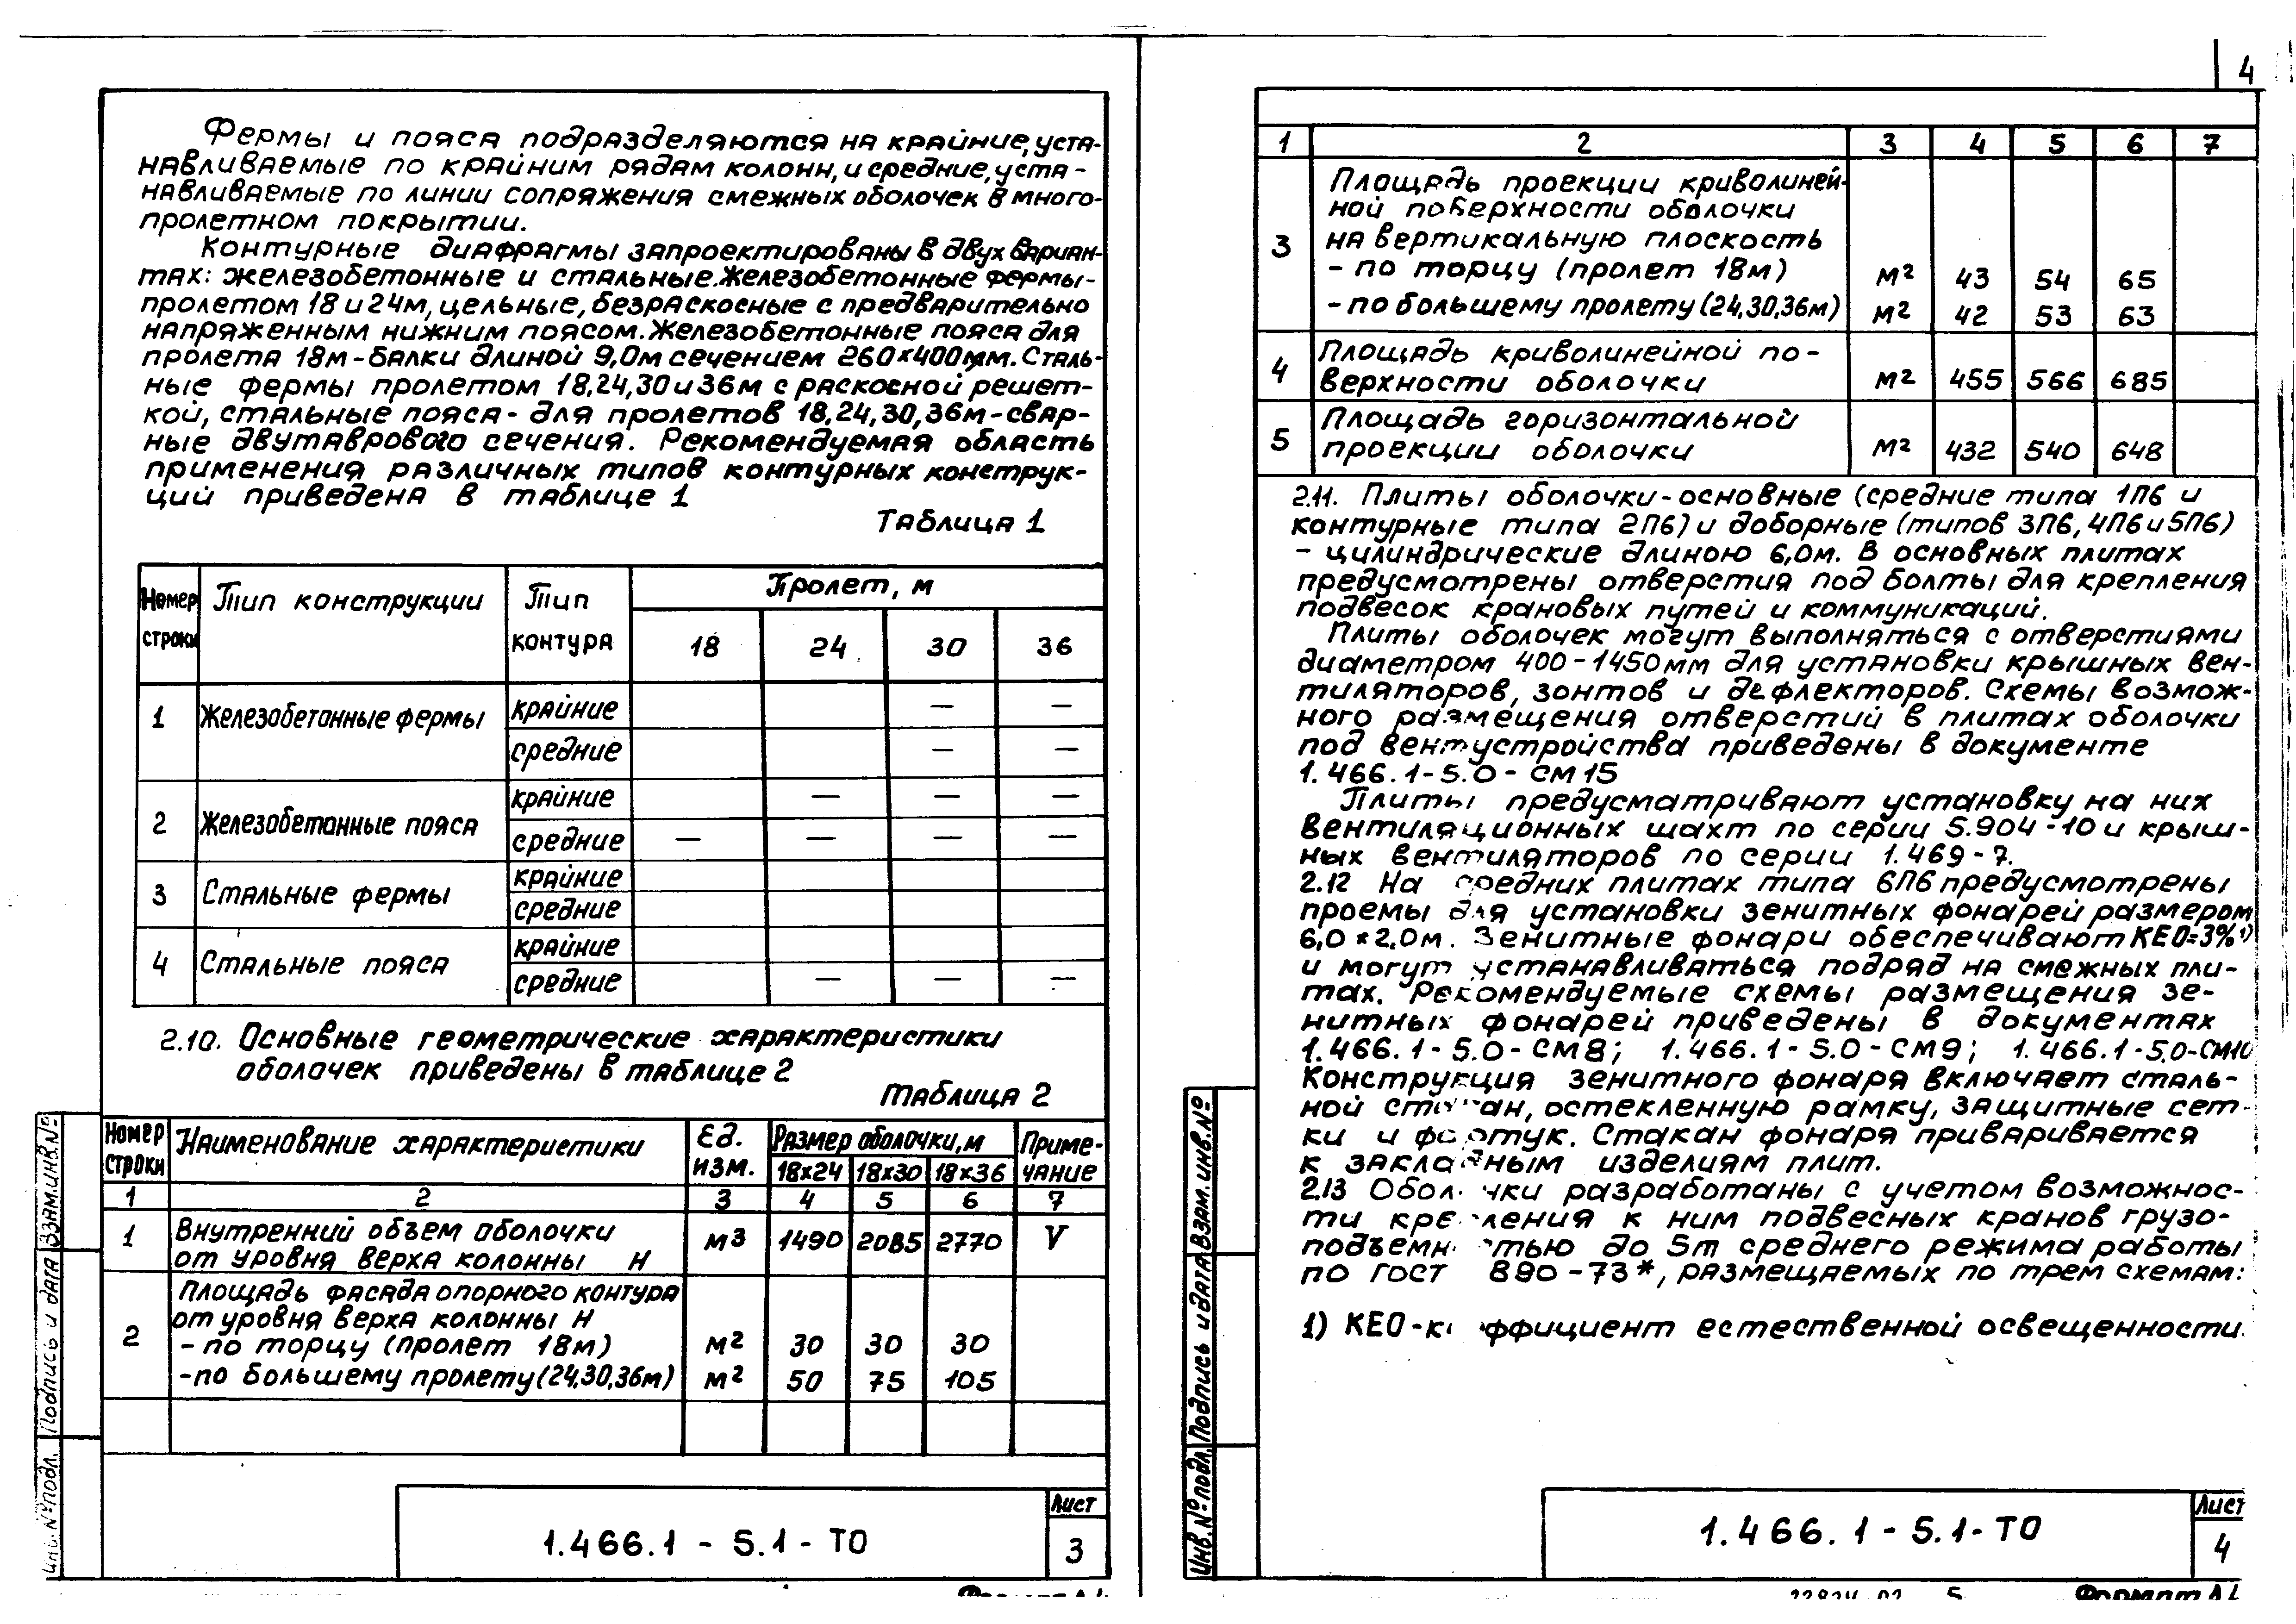 Фермы и пояса подразделяются на крайние, уста-
навливаемые по крайним рядам колонн, и средние, уста-
навливаемые по линии сопряжения смежных оболочек в много-
пролетном покрытии.
Контурные диафрагмы запроектированы в двух вариан-
тах: железобетонные и стальные. Железобетонные фермы-
пролетом 18 и 24м, цельные, безраскосные с предварительно
напряженным нижним поясом. Железобетонные пояса для
пролета 18м-балки длиной 9,0м сечением 260×400мм. Сталь-
ные фермы пролетом 18,24,30 и 36м с раскосной решет-
кой, стальные пояса - для пролетов 18,24,30,36м-свар-
ные двутаврового сечения. Рекомендуемая область
применения различных типов контурных конструк-
ций приведена в таблице 1
Таблица 1
Номер строки Тип конструкции Тип контура Пролет, м
18 24 30 36
1 Железобетонные фермы крайние — —
средние — —
2 Железобетонные пояса крайние — — —
средние — — — —
3 Стальные фермы крайние
средние
4 Стальные пояса крайние
средние — — —
2.10. Основные геометрические характеристики
оболочек приведены в таблице 2
Таблица 2
Номер строки Наименование характеристики Ед. изм. Размер оболочки, м Приме-чание
18×24 18×30 18×36
1 2 3 4 5 6 7
1 Внутренний объем оболочки
от уровня верха колонны Н м3 1490 2085 2770 V
2 Площадь фасада опорного контура
от уровня верха колонны Н
- по торцу (пролет 18м) м2 30 30 30
- по большему пролету (24,30,36м) м2 50 75 105
1.466.1 - 5.1 - ТО
Лист
3
Взам. инв. №
Подпись и дата
Инв. № подл.
4
1 2 3 4 5 6 7
3 Площадь проекции криволиней-
ной поверхности оболочки
на вертикальную плоскость
- по торцу (пролет 18м) м2 43 54 65
- по большему пролету (24,30,36м) м2 42 53 63
4 Площадь криволинейной по-
верхности оболочки м2 455 566 685
5 Площадь горизонтальной
проекции оболочки м2 432 540 648
2.11. Плиты оболочки - основные (средние типа 1П6 и
контурные типа 2П6) и доборные (типов 3П6, 4П6 и 5П6)
- цилиндрические длиною 6,0м. В основных плитах
предусмотрены отверстия под болты для крепления
подвесок крановых путей и коммуникаций.
Плиты оболочек могут выполняться с отверстиями
диаметром 400-1450мм для установки крышных вен-
тиляторов, зонтов и дефлекторов. Схемы возмож-
ного размещения отверстий в плитах оболочки
под вентустройства приведены в документе
1.466.1-5.0-СМ15
Плиты предусматривают установку на них
вентиляционных шахт по серии 5.904-10 и крыш-
ных вентиляторов по серии 1.469-7.
2.12 На средних плитах типа 6П6 предусмотрены
проемы для установки зенитных фонарей размером
6,0×2,0м. Зенитные фонари обеспечивают КЕО=3%1)
и могут устанавливаться подряд на смежных пли-
тах. Рекомендуемые схемы размещения зе-
нитных фонарей приведены в документах
1.466.1-5.0-СМ8; 1.466.1-5.0-СМ9; 1.466.1-5.0-СМ10
Конструкция зенитного фонаря включает сталь-
ной стакан, остекленную рамку, защитные сет-
ки и фартук. Стакан фонаря приваривается
к закладным изделиям плит.
2.13 Оболочки разработаны с учетом возможнос-
ти крепления к ним подвесных кранов грузо-
подъемностью до 5т среднего режима работы
по ГОСТ 890-73*, размещаемых по трем схемам:
1) КЕО-коэффициент естественной освещенности.
1.466.1 - 5.1 - ТО
Лист
4
Взам. инв. №
Подпись и дата
Инв. № подл.
5 Формат А4